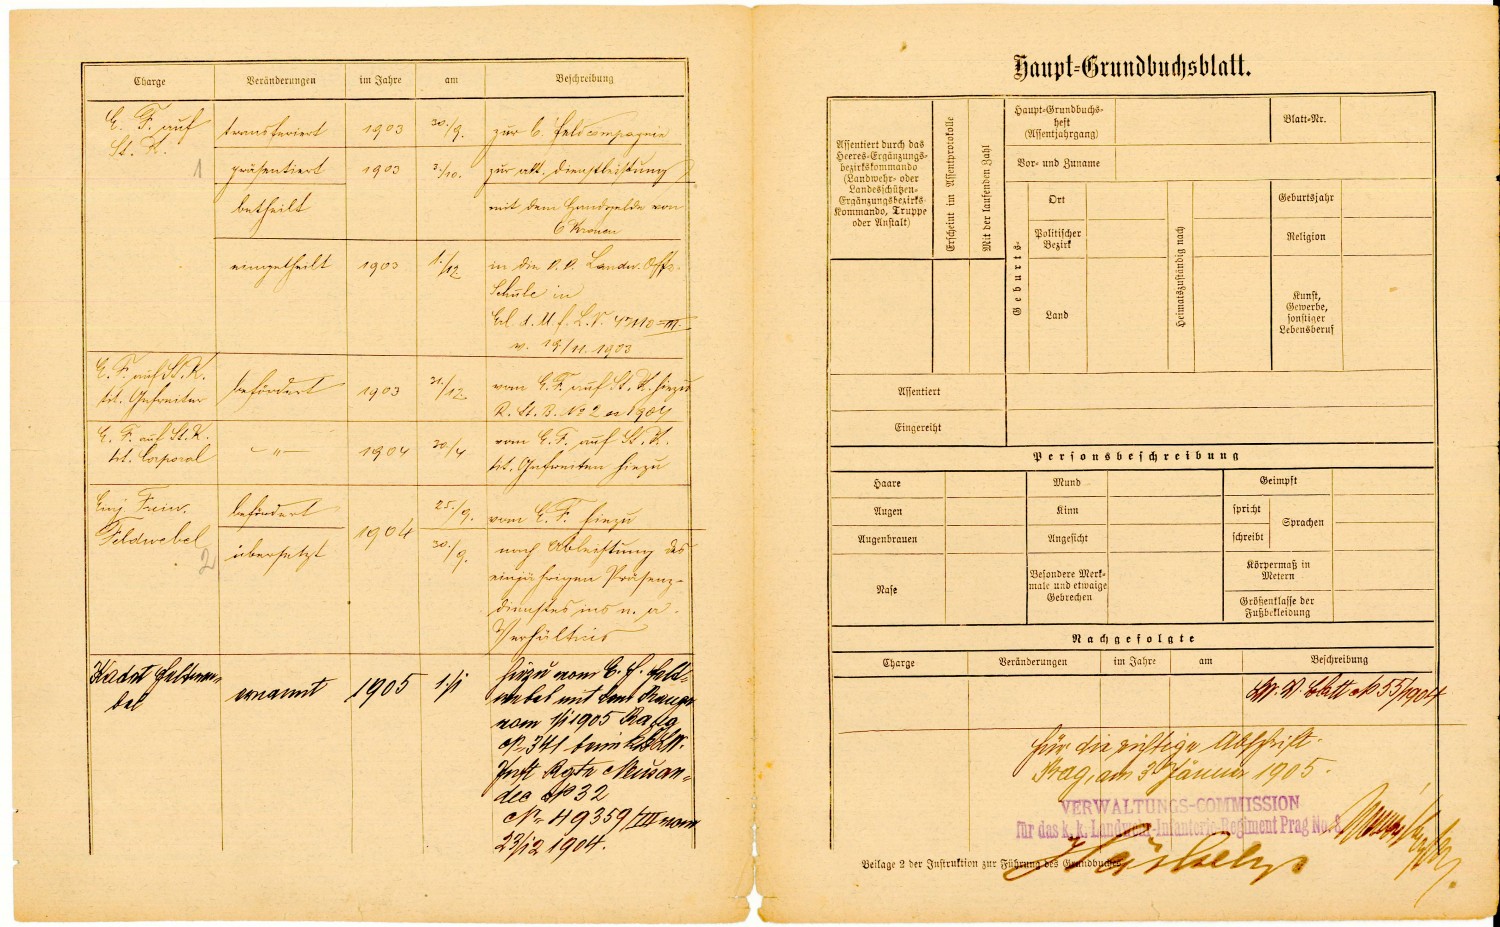 Charge Veränderungen im Jahre am Beschreibung
E. F. auf
St. K.
transferiert 1903 30./9. zur 6. Feldcompagnie
1
präsentiert 1903 3./10. zur akt. Dienstleistung
betheilt mit dem Handgelde von
6 Kronen
eingetheilt 1903 1./12 in die k. k. Landw. Offz.
Schule in
Erl. d. M. f. L. V. III.
v. 19/11. 1903
E. F. auf St. K.
tit. Gefreiter
befördert 1903 31./12 vom E. F. auf St. K. hiezu
R. St. B. No 2 ex 1904
E. F. auf St. K.
tit. Corporal
-"- 1904 30./4 vom E. F. auf St. K.
tit. Gefreiten hiezu
Einj. Freiw.
Feldwebel
2
befördert 1904 25./9. vom E. F. hiezu
übersetzt 30./9. nach Ableistung des
einjährigen Präsenz-
dienstes ins n. a.
Verhältnis
Kadet Feldwe-
bel
ernannt 1905 1./1 hiezu vom E. F. Feld-
webel mit dem Range
vom 1/1 1905 Rang
No 341 beim k. k. Ldw.
Inft Regte Neusan-
dec No 32
Nr 49359/III vom
23/12 1904.
Haupt-Grundbuchsblatt.
Assentiert durch das
Heeres-Ergänzungs-
bezirkskommando
(Landwehr- oder
Landesschützen-
Ergänzungsbezirks-
Kommando, Truppe
oder Anstalt)
Erscheint im Assentprotokolle
Mit der laufenden Zahl
Haupt-Grundbuchs-
heft
(Assentjahrgang)
Blatt-Nr.
Vor- und Zuname
Geburts-
Ort
Politischer
Bezirk
Land
Heimatszuständig nach
Geburtsjahr
Religion
Kunst,
Gewerbe,
sonstiger
Lebensberuf
Assentiert
Eingereiht
Personsbeschreibung
Haare Mund Geimpft
Augen Kinn spricht Sprachen
Augenbrauen Angesicht schreibt
Nase Besondere Merk-
male und etwaige
Gebrechen
Körpermaß in
Metern
Größenklasse der
Fußbekleidung
Nachgefolgte
Charge Veränderungen im Jahre am Beschreibung
V. Blatt No 55/1904
Für die richtige Abschrift.
Prag, am 3 Jänner 1905.
VERWALTUNGS-COMMISSION
für das k. k. Landwehr-Infanterie-Regiment Prag No. 8
Beilage 2 der Instruktion zur Führung des Grundbuches.